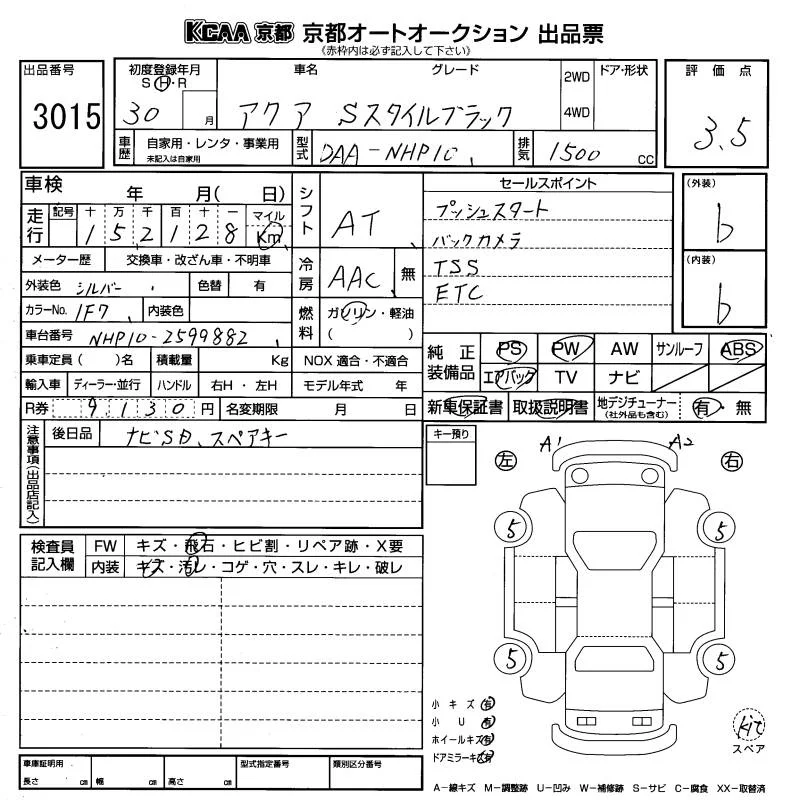 KCAA 京都 京都オートオークション 出品票
(赤枠内は必ず記入して下さい)
出品番号
3015
初度登録年月
S・H・R
30 月
車名 グレード
アクア Sスタイルブラック
2WD
4WD
ドア・形状
評価点
3.5
車歴
自家用・レンタ・事業用
未記入は自家用
型式
DAA-NHP10
排気
1500 cc
車検
年 月( 日)
走行
記号 十 万 千 百 十 一 マイル
1 5 2 1 2 8 Km
メーター歴 交換車・改ざん車・不明車
外装色 シルバー 色替 有
カラーNo. 1F7 内装色
車台番号 NHP10-2599882
乗車定員( )名 積載量 Kg
輸入車 ディーラー・並行 ハンドル 右H・左H
R券 9,130円 名変期限 月 日
シフト
AT
冷房
AAC 無
燃料
ガソリン・軽油
( )
NOX適合・不適合
モデル年式 年
セールスポイント
プッシュスタート
バックカメラ
TSS
ETC
(外装)
b
(内装)
b
純正装備品
PS PW AW サンルーフ ABS
エアバック TV ナビ
新車保証書 取扱説明書 地デジチューナー
(社外品も含む)
有・無
注意事項(出品店記入)
後日品 ナビSD、スペアキー
キー預り
検査員記入欄
FW キズ・飛石・ヒビ割・リペア跡・X要
内装 キズ・汚レ・コゲ・穴・スレ・キレ・破レ
左 A1 A2 右
5 5
5 5
小キズ 有
小U 有
ホイールキズ 有
ドアミラーキズ 有
kit
スペア
車庫証明用
長さ cm 幅 cm 高さ cm
型式指定番号
類別区分番号
A-線キズ M-調整跡 U-凹み W-補修跡 S-サビ C-腐食 XX-取替済